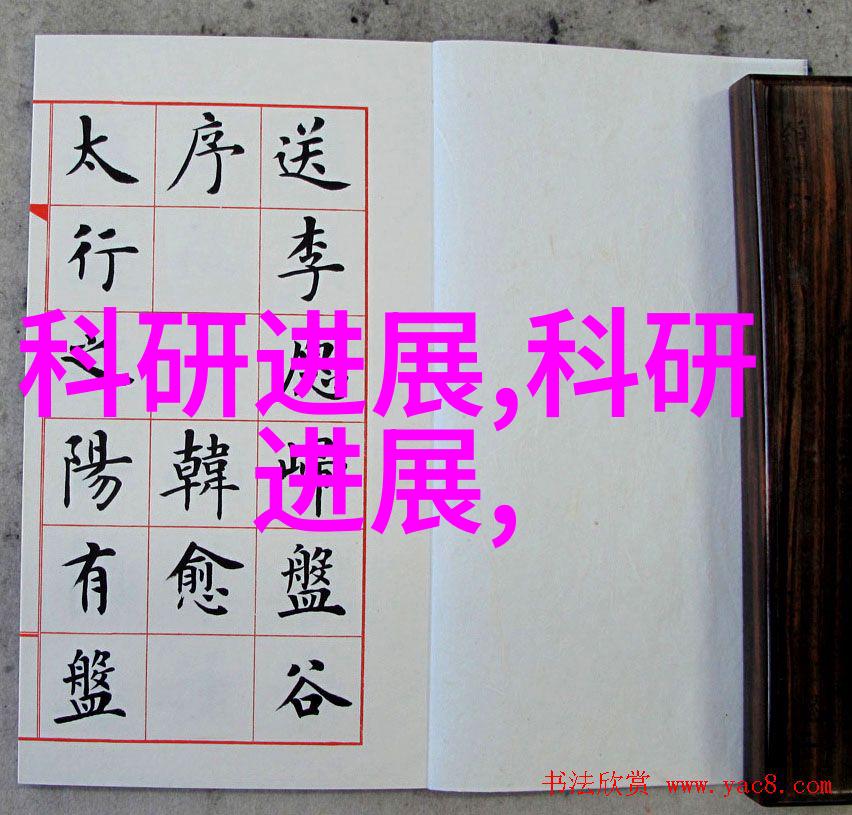 送李愿歸盤谷
序 韓愈
太行之陽有盤
科研进展,科研
进展,
书法欣赏 www.yac8.com